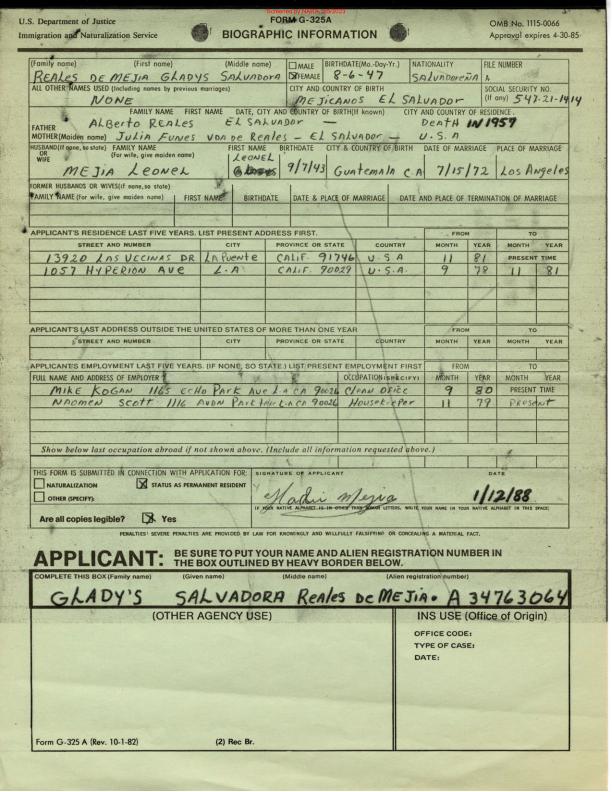 Screened by NARA, 2/8/2023
U.S. Department of Justice
Immigration and Naturalization Service
FORM G-325A
BIOGRAPHIC INFORMATION
OMB No. 1115-0066
Approval expires 4-30-85
(Family name) (First name) (Middle name) MALE BIRTHDATE(Mo.-Day-Yr.) NATIONALITY FILE NUMBER
REALES DE MEJIA GLADYS SALVADORA FEMALE 8-6-47 SALVADOREÑA A
ALL OTHER NAMES USED (Including names by previous marriages) CITY AND COUNTRY OF BIRTH SOCIAL SECURITY NO. (If any)
NONE MEJICANOS EL SALVADOR 547-21-1414
FAMILY NAME FIRST NAME DATE, CITY AND COUNTRY OF BIRTH(If known) CITY AND COUNTRY OF RESIDENCE.
FATHER ALBERTO REALES EL SALVADOR — DEATH IN 1957
MOTHER(Maiden name) JULIA FUNES VDA DE REALES - EL SALVADOR - U.S.A
HUSBAND(If none, so state) OR WIFE FAMILY NAME (For wife, give maiden name) FIRST NAME BIRTHDATE CITY & COUNTRY OF BIRTH DATE OF MARRIAGE PLACE OF MARRIAGE
MEJIA LEONEL LEONEL 9/7/43 Guatemala C A 7/15/72 Los Angeles
FORMER HUSBANDS OR WIVES(If none, so state)
FAMILY NAME (For wife, give maiden name) FIRST NAME BIRTHDATE DATE & PLACE OF MARRIAGE DATE AND PLACE OF TERMINATION OF MARRIAGE
APPLICANT'S RESIDENCE LAST FIVE YEARS. LIST PRESENT ADDRESS FIRST. FROM TO
STREET AND NUMBER CITY PROVINCE OR STATE COUNTRY MONTH YEAR MONTH YEAR
13920 LAS VECINAS DR LA Puente CALIF. 91746 U.S A 11 81 PRESENT TIME
1057 HYPERION AVE L.A CALIF. 90029 U.S.A. 9 78 11 81
APPLICANT'S LAST ADDRESS OUTSIDE THE UNITED STATES OF MORE THAN ONE YEAR FROM TO
STREET AND NUMBER CITY PROVINCE OR STATE COUNTRY MONTH YEAR MONTH YEAR
APPLICANT'S EMPLOYMENT LAST FIVE YEARS. (IF NONE, SO STATE.) LIST PRESENT EMPLOYMENT FIRST FROM TO
FULL NAME AND ADDRESS OF EMPLOYER OCCUPATION(SPECIFY) MONTH YEAR MONTH YEAR
MIKE KOGAN 1165 ECHO PARK AVE LA CA 90026 CLEAN OFICE 9 80 PRESENT TIME
NAOMEN SCOTT 1116 AVON PARK L.A CA 90026 Housekeeper 11 79 PRESENT
Show below last occupation abroad if not shown above. (Include all information requested above.)
THIS FORM IS SUBMITTED IN CONNECTION WITH APPLICATION FOR: SIGNATURE OF APPLICANT DATE
NATURALIZATION STATUS AS PERMANENT RESIDENT
OTHER (SPECIFY): Mejia 1/12/88
IF YOUR NATIVE ALPHABET IS IN OTHER THAN ROMAN LETTERS, WRITE YOUR NAME IN YOUR NATIVE ALPHABET IN THIS SPACE:
Are all copies legible? Yes
PENALTIES: SEVERE PENALTIES ARE PROVIDED BY LAW FOR KNOWINGLY AND WILLFULLY FALSIFYING OR CONCEALING A MATERIAL FACT.
APPLICANT: BE SURE TO PUT YOUR NAME AND ALIEN REGISTRATION NUMBER IN
THE BOX OUTLINED BY HEAVY BORDER BELOW.
COMPLETE THIS BOX (Family name) (Given name) (Middle name) (Alien registration number)
GLADY'S SALVADORA Reales De MEJIA. A 34763064
(OTHER AGENCY USE) INS USE (Office of Origin)
OFFICE CODE:
TYPE OF CASE:
DATE:
Form G-325 A (Rev. 10-1-82) (2) Rec Br.